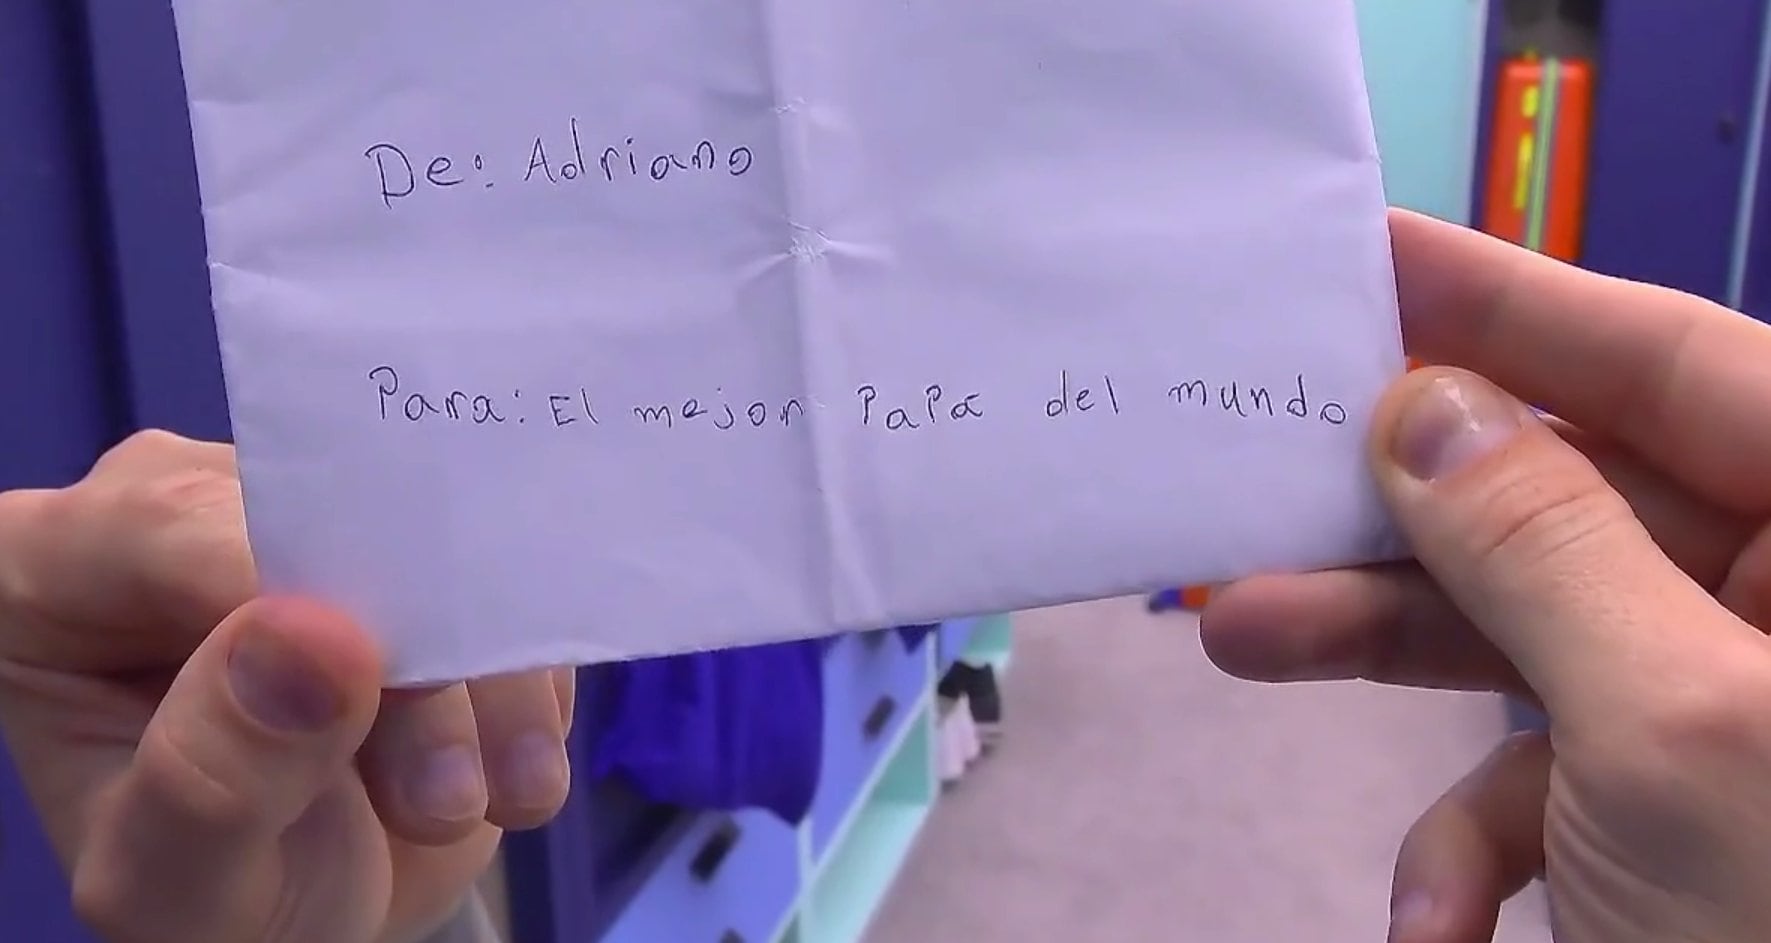 De: Adriano
Para: El mejor PaPa del mundo